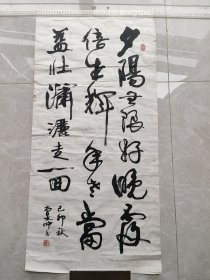 夕陽無限好晚霞
倍生輝年老當
益壯瀟灑走一回
己卯秋